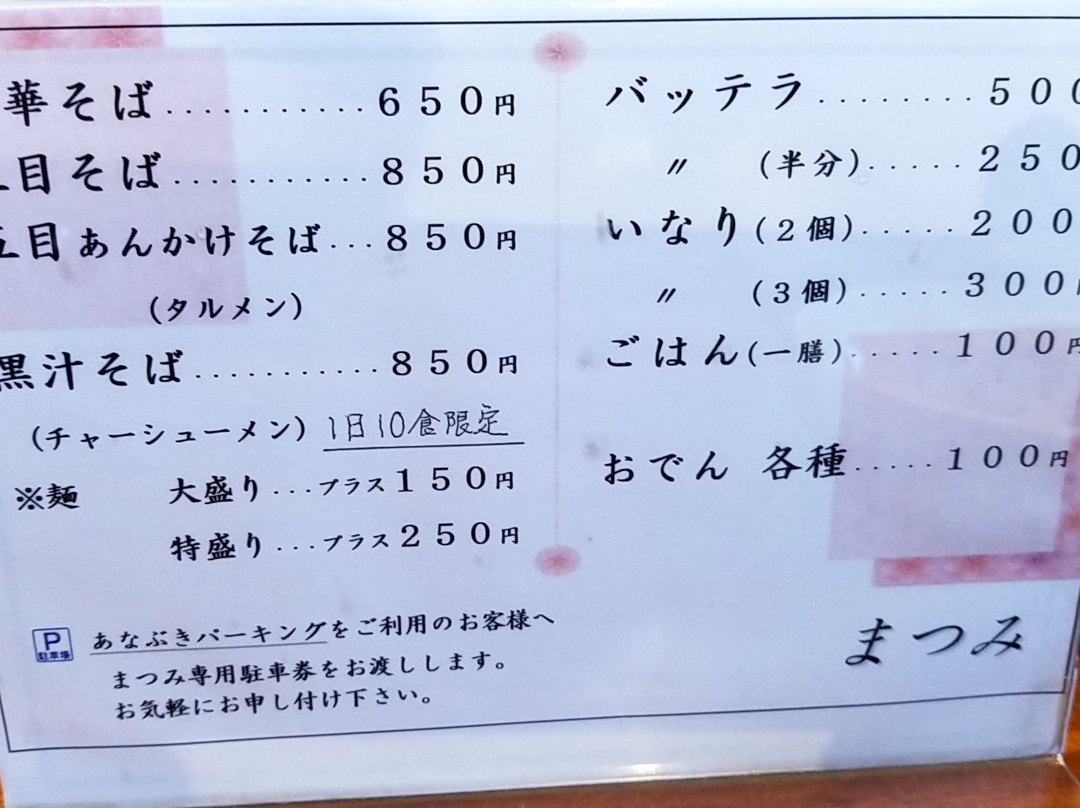 華そば...........650円
目そば...........850円
五目あんかけそば...850円
(タルメン)
黒汁そば...........850円
(チャーシューメン) 1日10食限定
※麺 大盛り...プラス150円
特盛り...プラス250円
P
駐車場
あなぶきパーキングをご利用のお客様へ
まつみ専用駐車券をお渡しします。
お気軽にお申し付け下さい。
バッテラ........500
〃 (半分).....250
いなり(2個).....200
〃 (3個).....300
ごはん(一膳).....100円
おでん 各種.....100円
まつみ